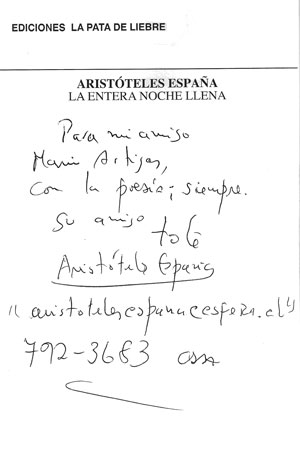 EDICIONES LA PATA DE LIEBRE
ARISTÓTELES ESPAÑA
LA ENTERA NOCHE LLENA
Para mi amigo
Mario Artigas,
con la poesía; siempre.
Su amigo
Aristóteles España
792-3683